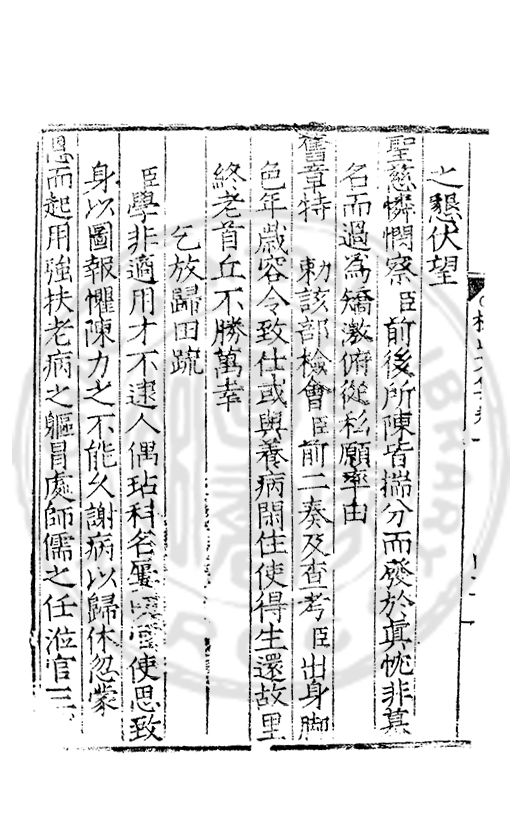 之懇伏望
聖慈憐憫察臣前後所陳皆揣分而發於真忱非慕
名而過為矯激俯從私願率由
舊章特　勑該部檢會臣前二奏及查考臣出身脚
色年歲容令致仕或與養病閑住使得生還故里
終老首丘不勝萬幸
乞放歸田疏
臣學非適用才不逮人偶玷科名屢官使思致
身以圖報懼陳力之不能久謝病以歸休忽蒙
恩而起用強扶老病之軀冒處師儒之任涖官三